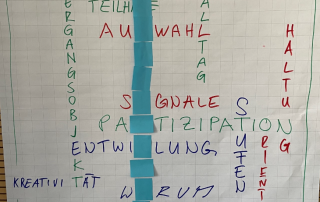 TEILHA E
AU WAHL
S GNALE
PA TIZIPATION
ENTWI LUNG
KREATIVITÄT
W RUM
ERGANGSOBJEKT
ALLTAG
STUFEN
ORIENT
HALTUNG